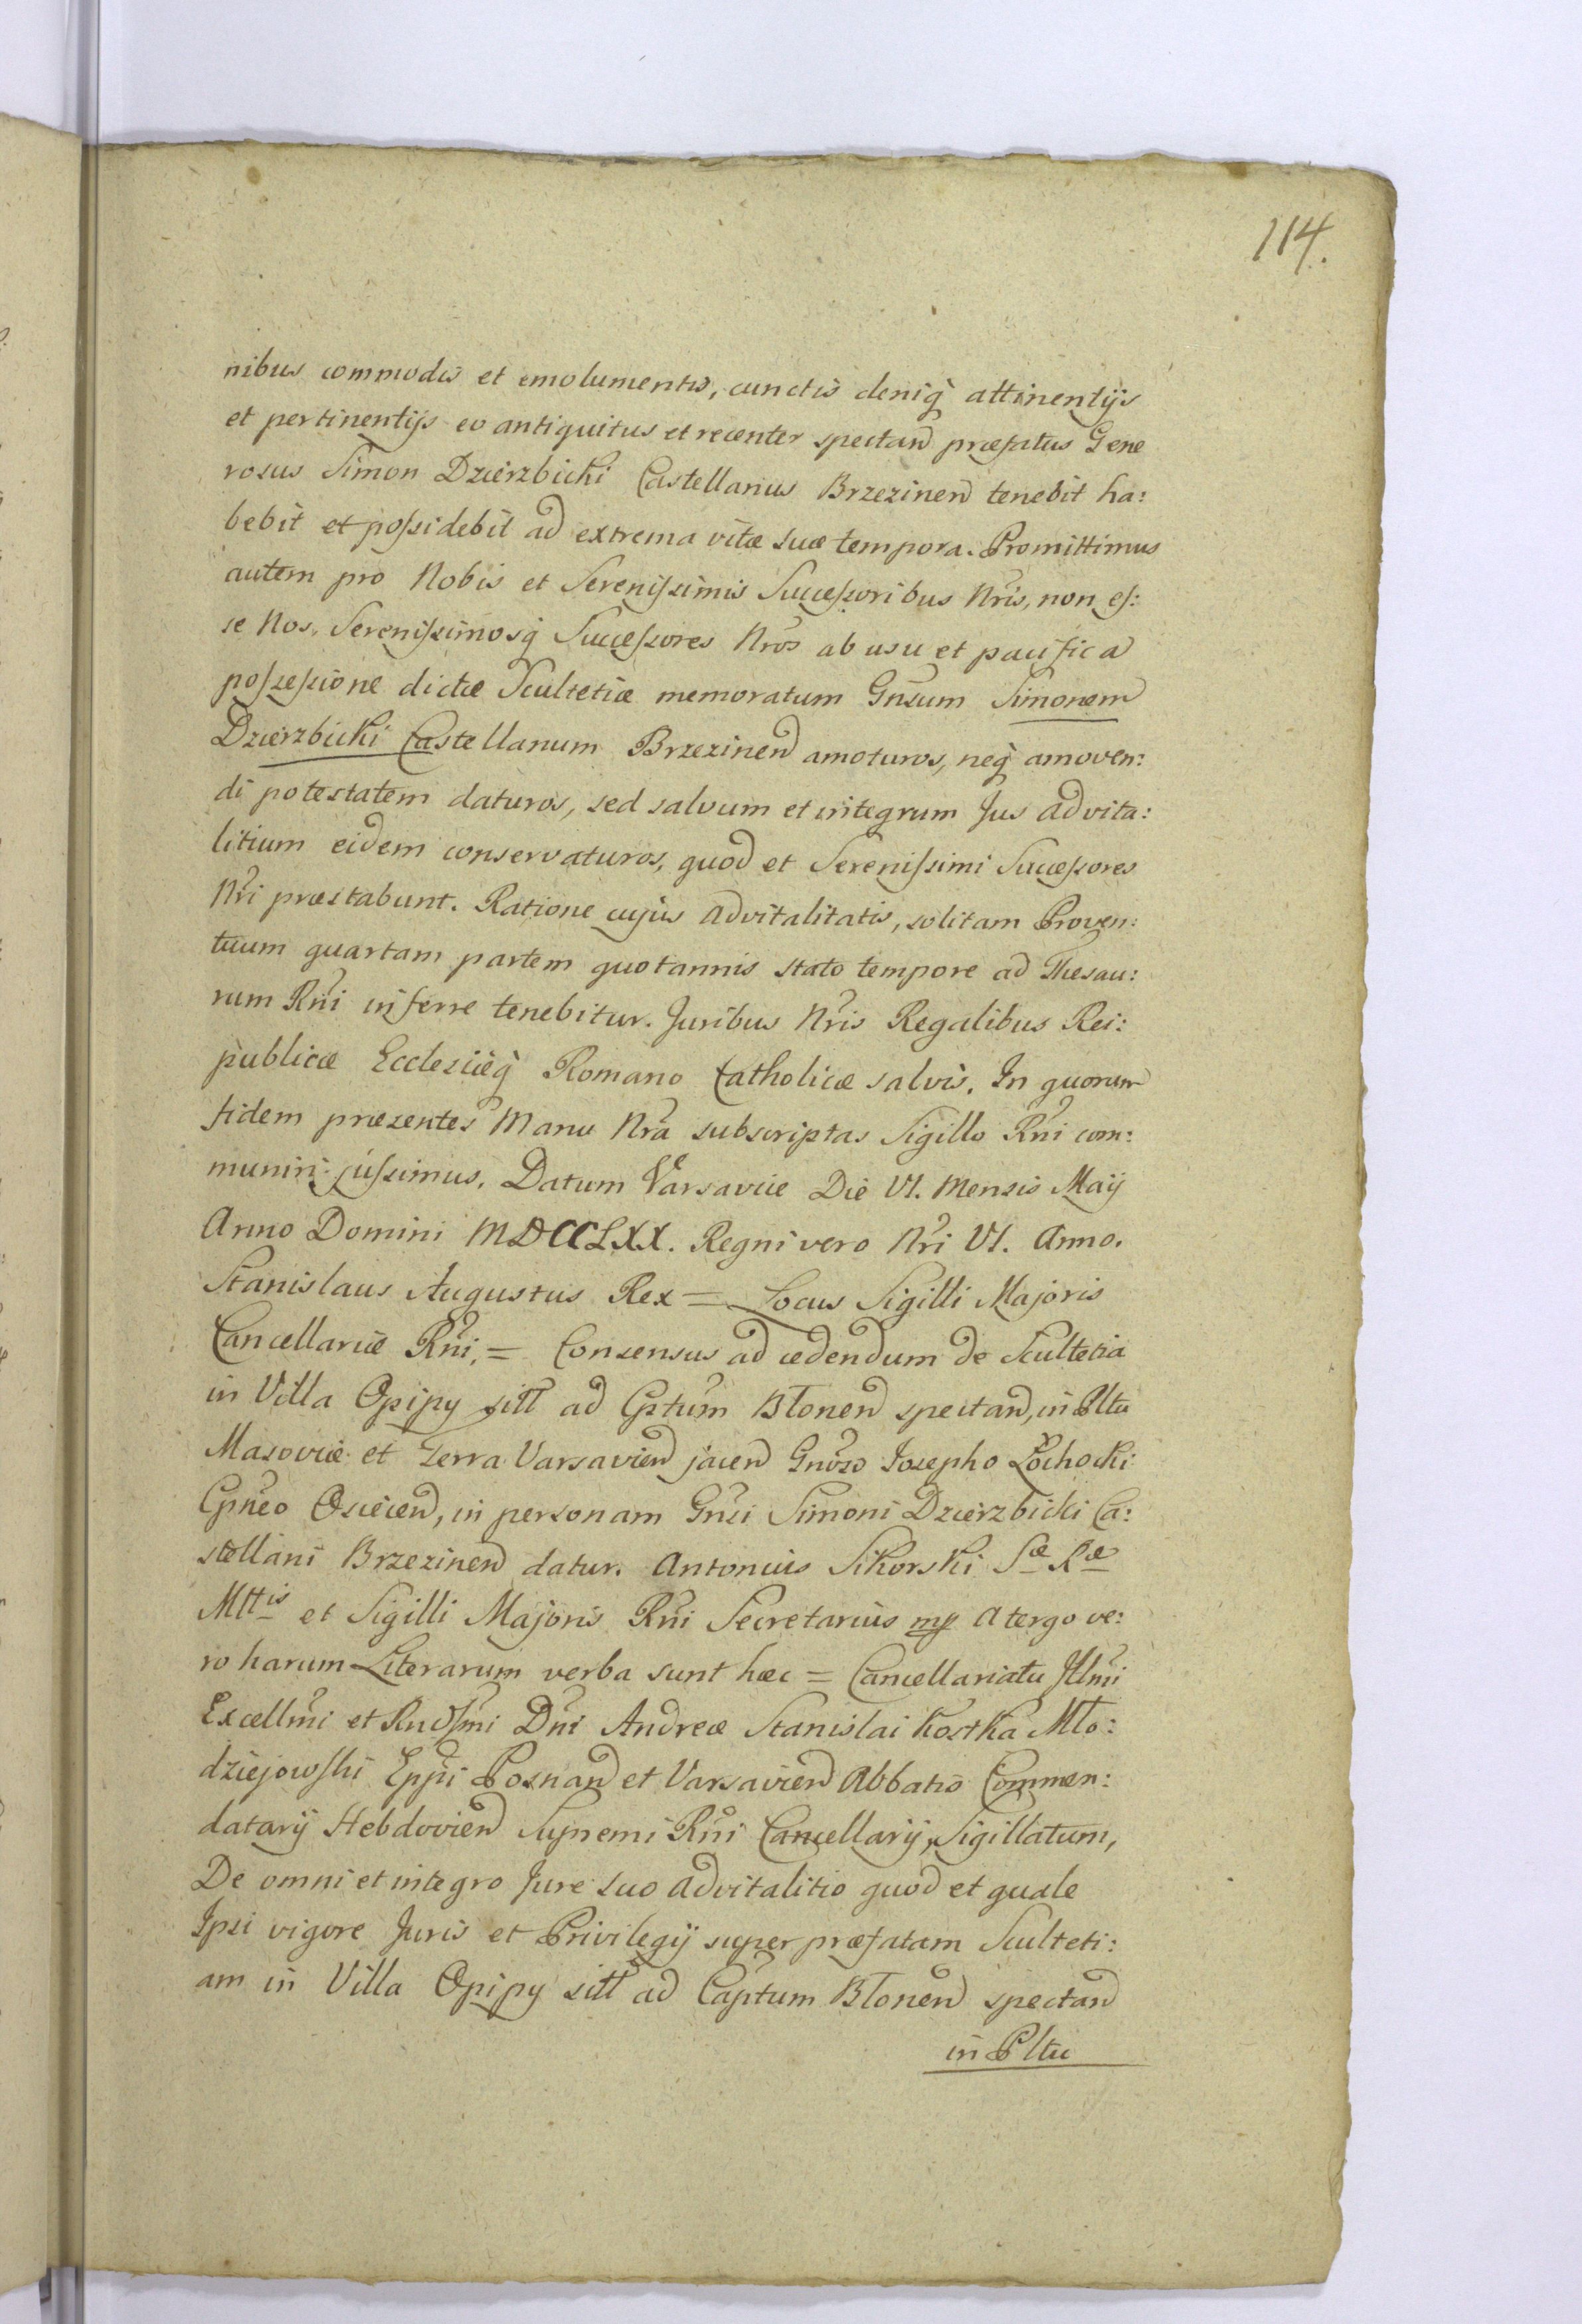 114.
nibus commodis et emolumentis, cunctis deniq̀ attinentijs
et pertinentijs eo antiquitus et recenter spectand præfatus Gene
rosus Simon Dzierzbicki Castellanus Brzezinen tenebit ha:
bebit et poſsidebit ad extrema vitæ suæ tempora. Promittimus
autem pro Nobis et Sereniſsimis Succeſsoribus Nris, non eſ:
se Nos, Sereniſsimosq̀ Succeſsores Nros ab usu et pacifica
poſseſsione dictæ Scultetiæ memoratum Gnsum Simonem
Dzierzbicki Castellanum Brzezinen amoturos, neq̀ amoven:
di potestatem daturos, sed salvum et integrum Jus advita:
litium eidem conservaturos, quod et Sereniſsimi Succeſsores
Nri præstabunt. Ratione cujus advitalitatis, solitam Proven:
tuum quartam partem quotannis stato tempore ad Thesau:
rum Rni inferre tenebitur. Juribus Nris Regalibus Rei:
publicæ Ecclesiæq̀ Romano Catholicæ salvis. In quorum
fidem præsentes Manu Nra subscriptas Sigillo Rni com:
muniri juſsimus. Datum Varsaviæ Die VI. Mensis Maij
Anno Domini MDCCLXX. Regni vero Nri VI. Anno.
Stanislaus Augustus Rex = Locus Sigilli Majoris
Cancellariæ Rni, = Consensus ad cedendum de Scultetia
in Villa Opipy sitt ad Cptum Błonen spectand, in Pltu
Masoviæ et Terra Varsavien jacen Gnoso Josepho Łochocki
Cpneo Osiecen, in personam Gnsi Simoni Dzierzbicki Ca:
stellani Brzezinen datur. Antonius Sikorski Sæ Ræ
Mttis et Sigilli Majoris Rni Secretarius mp A tergo ve:
ro harum Literarum verba sunt hæc = Cancellariatu Illmi
Excellmi et Rndſmi Dni Andreæ Stanislai Kostka Mło:
dziejowſki Eppi Posnan et Varsavien Abbatis Commen:
datarij Hebdovien Supremi Rni Cancellarij, Sigillatum,
De omni et integro Jure suo advitalitio quod et quale
Ipsi vigore Juris et Privilegij super præfatam Sculteti:
am in Villa Opipy sitt ad Captum Błonen spectand
in Pltu